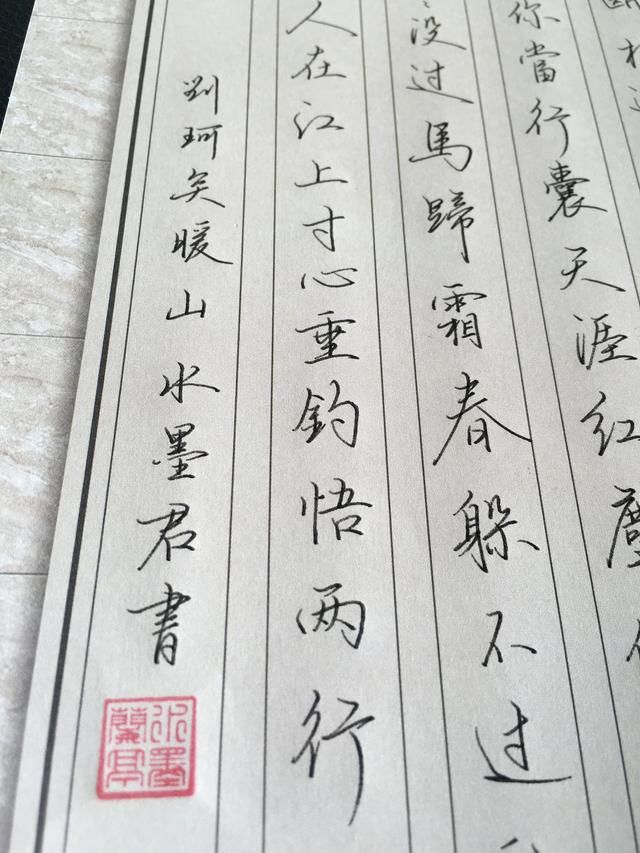 你當行囊天涯红塵
没过馬蹄霜春躲不过
人在江上寸心垂釣悟两行
刘珂矣暖山水墨君書
水墨
蘭亭